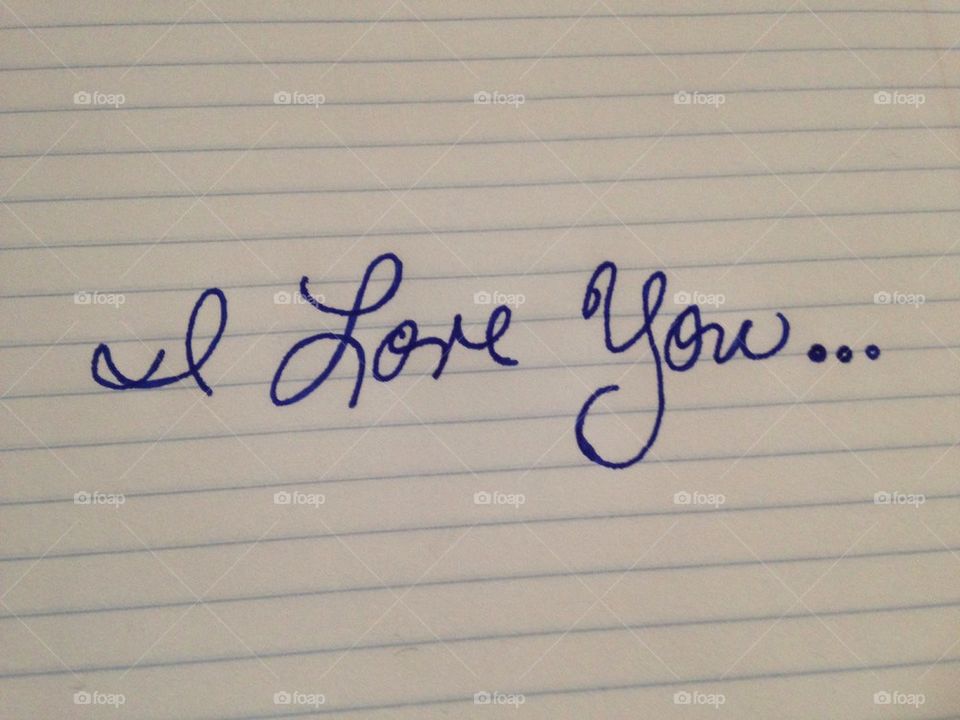 I Love You...
foap foap foap foap foap
foap foap foap foap foap
foap foap foap foap foap
foap foap foap foap foap